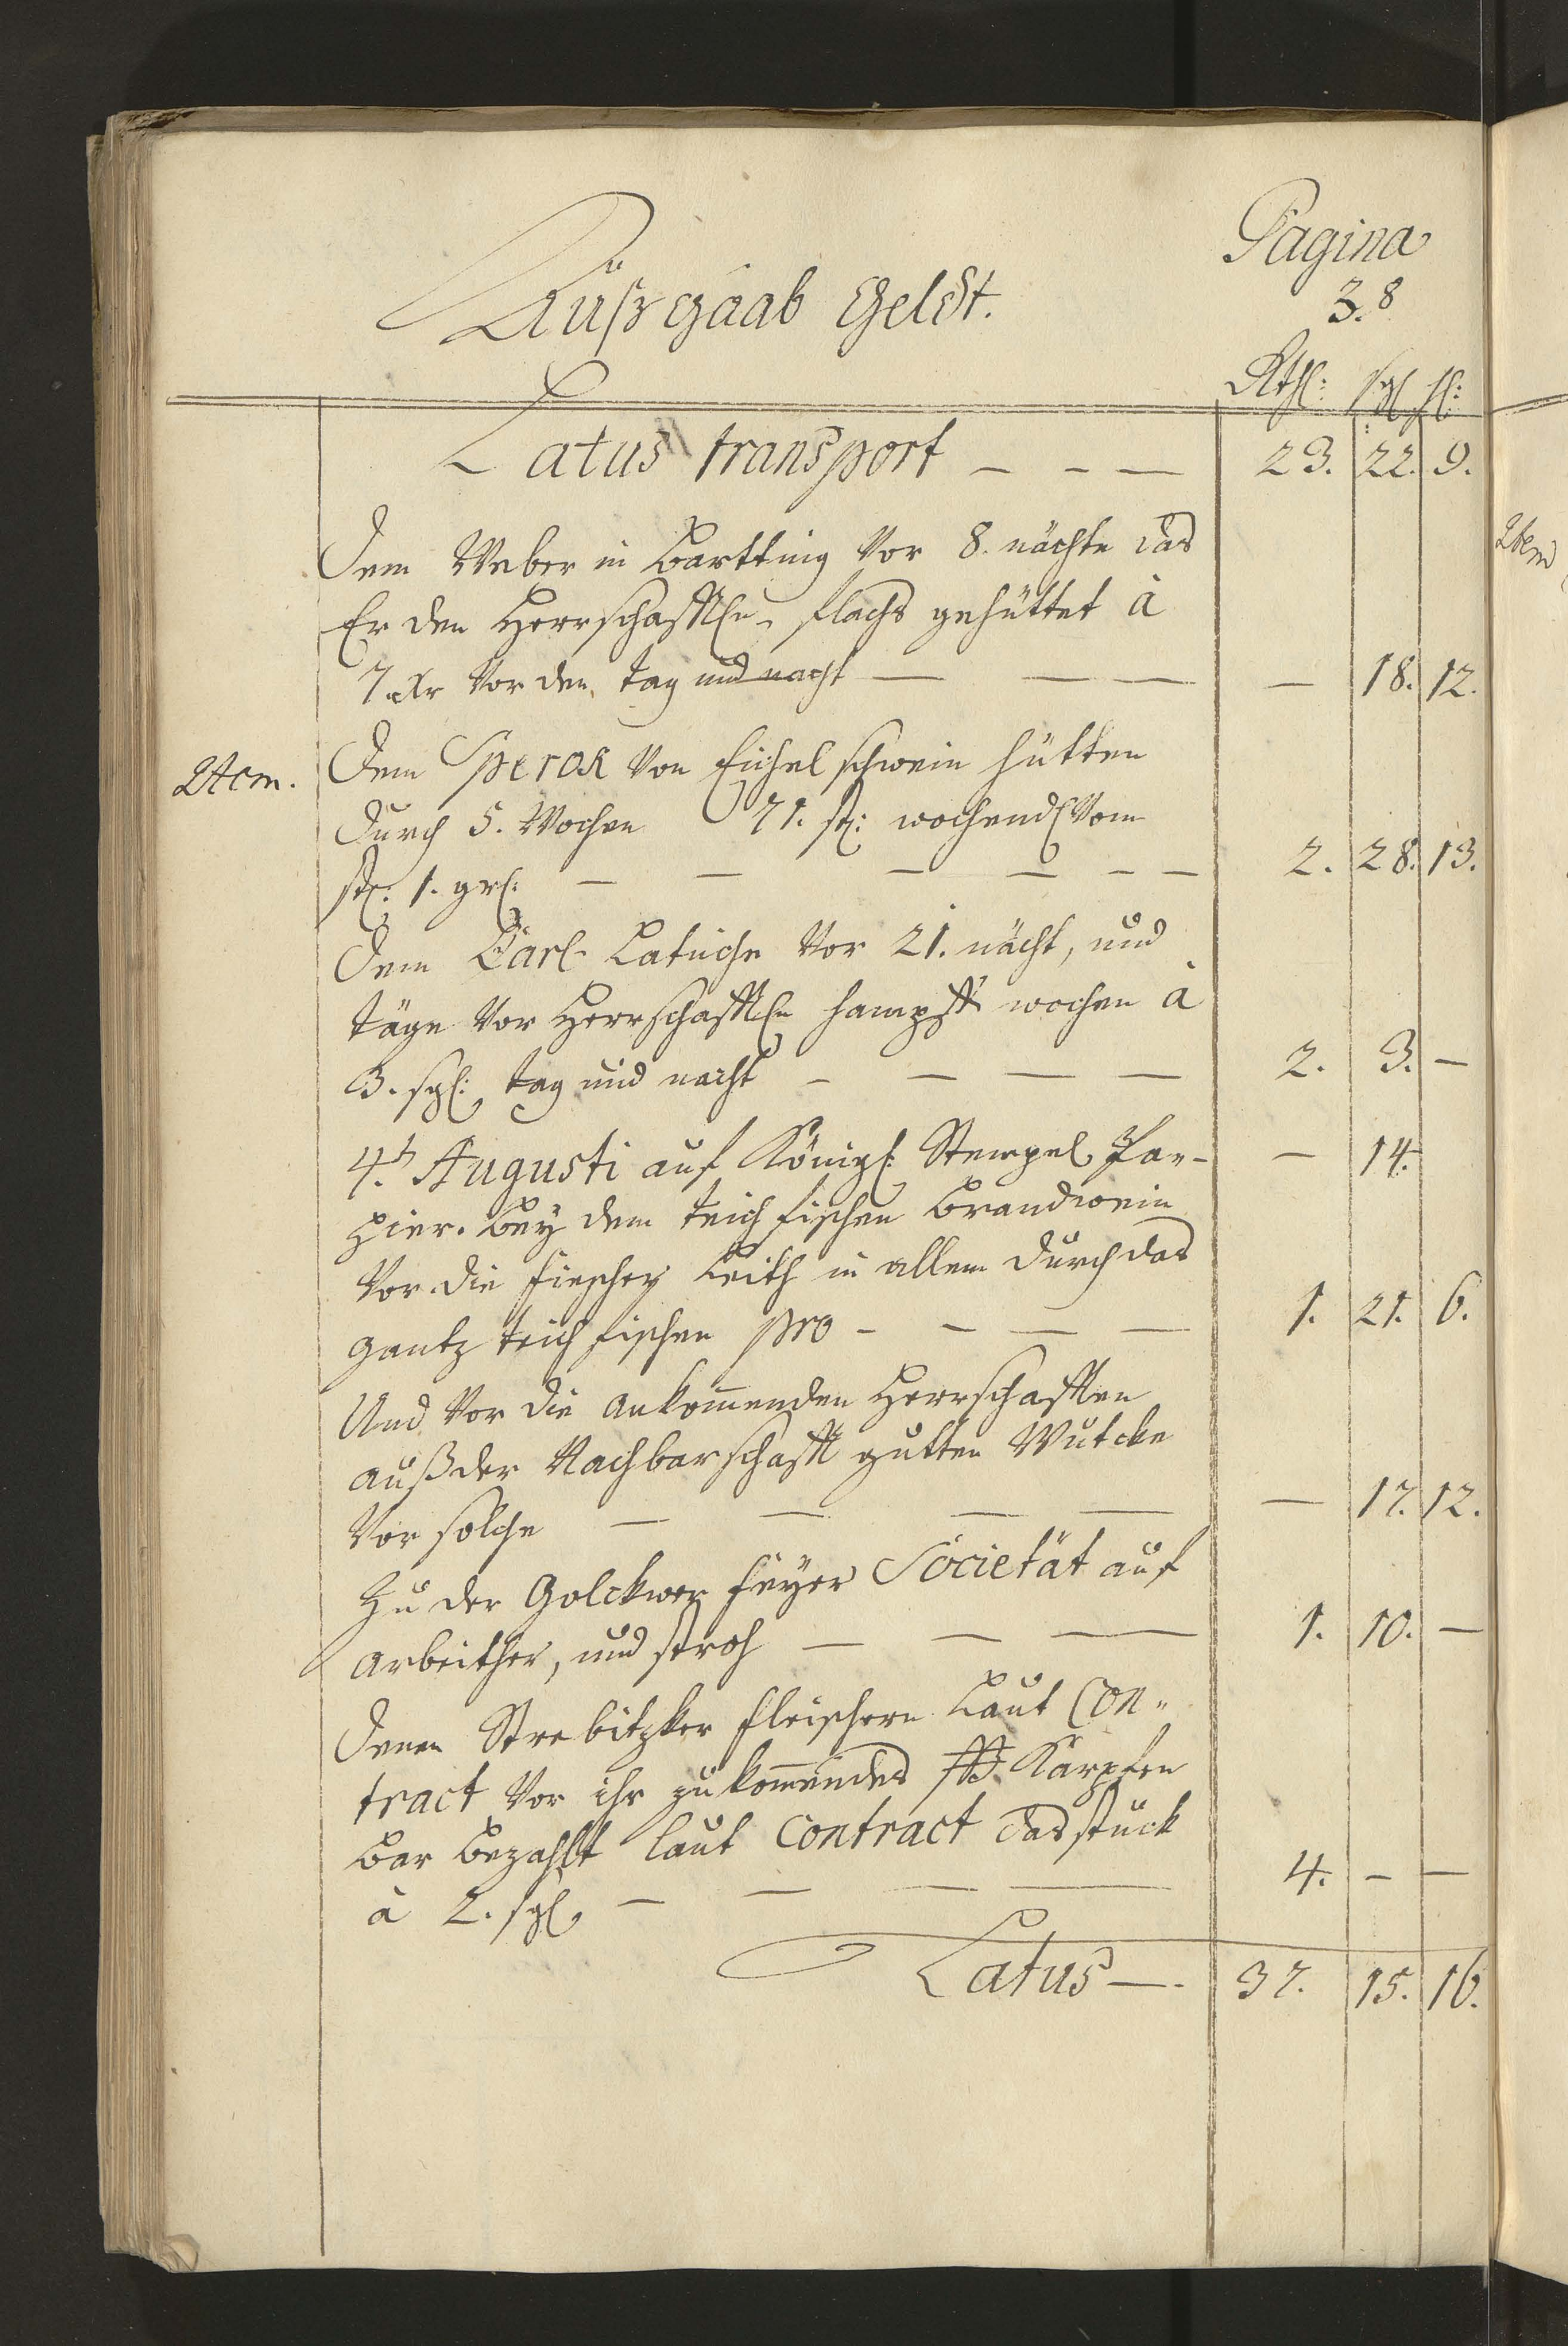 Pagina
3.8
Außgaab Geldt.
Rthl: sgl hl:
Latus transport — — — 23. 22. 9.
Dem Weber in Bartting Vor 8. nächte das
Er den Herrschafftlen flachs gehüttet à
7. Xr Vor den tag und nacht — — — — 18. 12.
Item. Dem Sperok Von Eichel schwein hütten
Durch 5. Wochen 71. st: wochendl Vom
st: 1. grl: — — — — — — 2. 28. 13.
Dem Carl Latuche Vor 21. nächt, und
täge Vor Herrschafftlen wochen à
3. sgl: tag und nacht — — — — 2. 3. —
4t Augusti auf Königl: Stempel Pap- — 14.
pier. Bey dem teich fischen Brandwein
Vor die fischer Leith in allem durch das
gantz teich fischen pro — — — — 1. 21. 6.
Und Vor die ankommenden Herrschafften
auß der Nachbarschafft gutten Wutcke
Vor solche — — — — — 17. 12.
Zu der Golckwer feyer Societät auf
arbeither, und stroh — — — 1. 10. —
Denen Strebitzker fleischern Laut Con-
tract Vor ihr zukommendes Karpfen
Bar Bezahlt laut Contract das stuck
à 2. sgl — — — — 4. — —
Latus — . 37. 15. 16.
Item